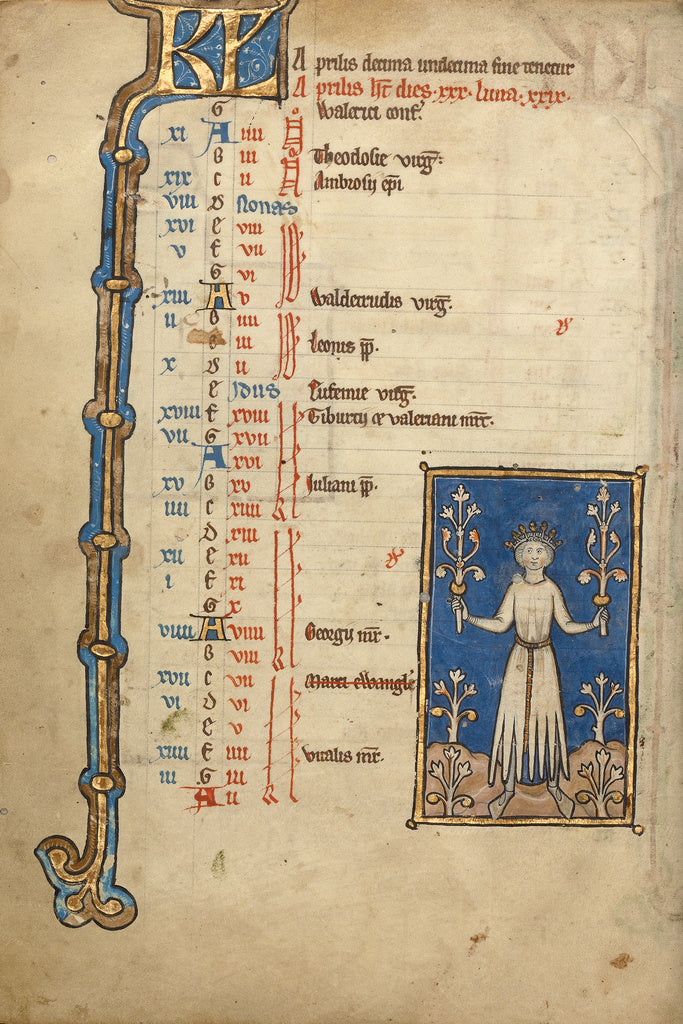 KL Aprilis decima undecima fine tenetur
Aprilis ht dies .xxx. luna .xxix.
G Walerici conf.
xi A iiii
B iii Theodosie virg:
xix c ii Ambrosij epi
viii D Nonas
xvi e viii
v f vii
G vi
xiii A v Waldetrudis virg.
ii B iiii
iii Leonis pp.
x D ii
e Idus Eufemie virg.
xviii f xviii Tiburtij & valeriani mrr.
vii G xvii
A xvi
xv B xv Iuliani pp.
iiii c xiiii
d xiii
xii e xii
i f xi
G x
viiii A viiii Georgij mr.
B viii
xvii c vii Marci ewangle
vi d vi
e v
xiiii f iiii vitalis mr.
iii G iii
A ii